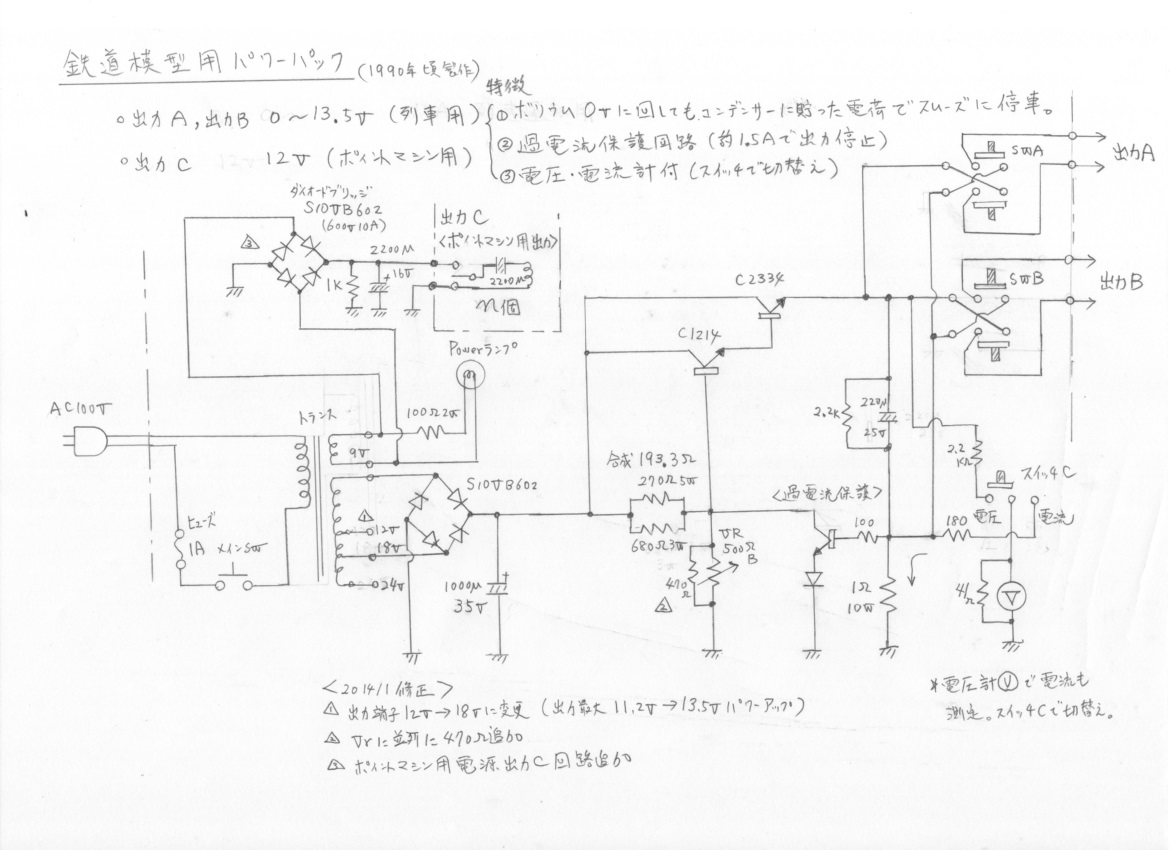 鉄道模型用パワーパック (1990年頃製作)
特徴
○出力A,出力B 0〜13.5V (列車用)
①ボリウム0Vに回してもコンデンサーに貯った電荷でスムーズに停車。
②過電流保護回路(約1.5Aで出力停止)
③電圧・電流計付(スイッチで切替え)
○出力C 12V (ポイントマシン用)
ダイオードブリッジ
S10VB602
(600V10A)
3
1K
2200μ
16V
出力C
<ポイントマシン用出力>
2200μ
n個
Powerランプ
SWA
出力A
SWB
出力B
C2334
C1214
AC100V
トランス
100Ω2W
9V
S10VB602
1
12V
18V
24V
ヒューズ
1A
メインSW
1000μ
35V
合成193.3Ω
270Ω5W
680Ω3W
VR
500Ω
B
470
Ω
2
<過電流保護>
2.2K
220μ
25V
100
180
1Ω
10W
2.2
KΩ
スイッチC
電圧
電流
41
Ω
V
*電圧計Ⓥで電流も
測定。スイッチCで切替え。
<2014/1修正>
1 出力端子12V→18Vに変更 (出力最大11.2V→13.5Vパワーアップ)
2 Vrに並列に470Ω追加
3 ポイントマシン用電源出力C回路追加